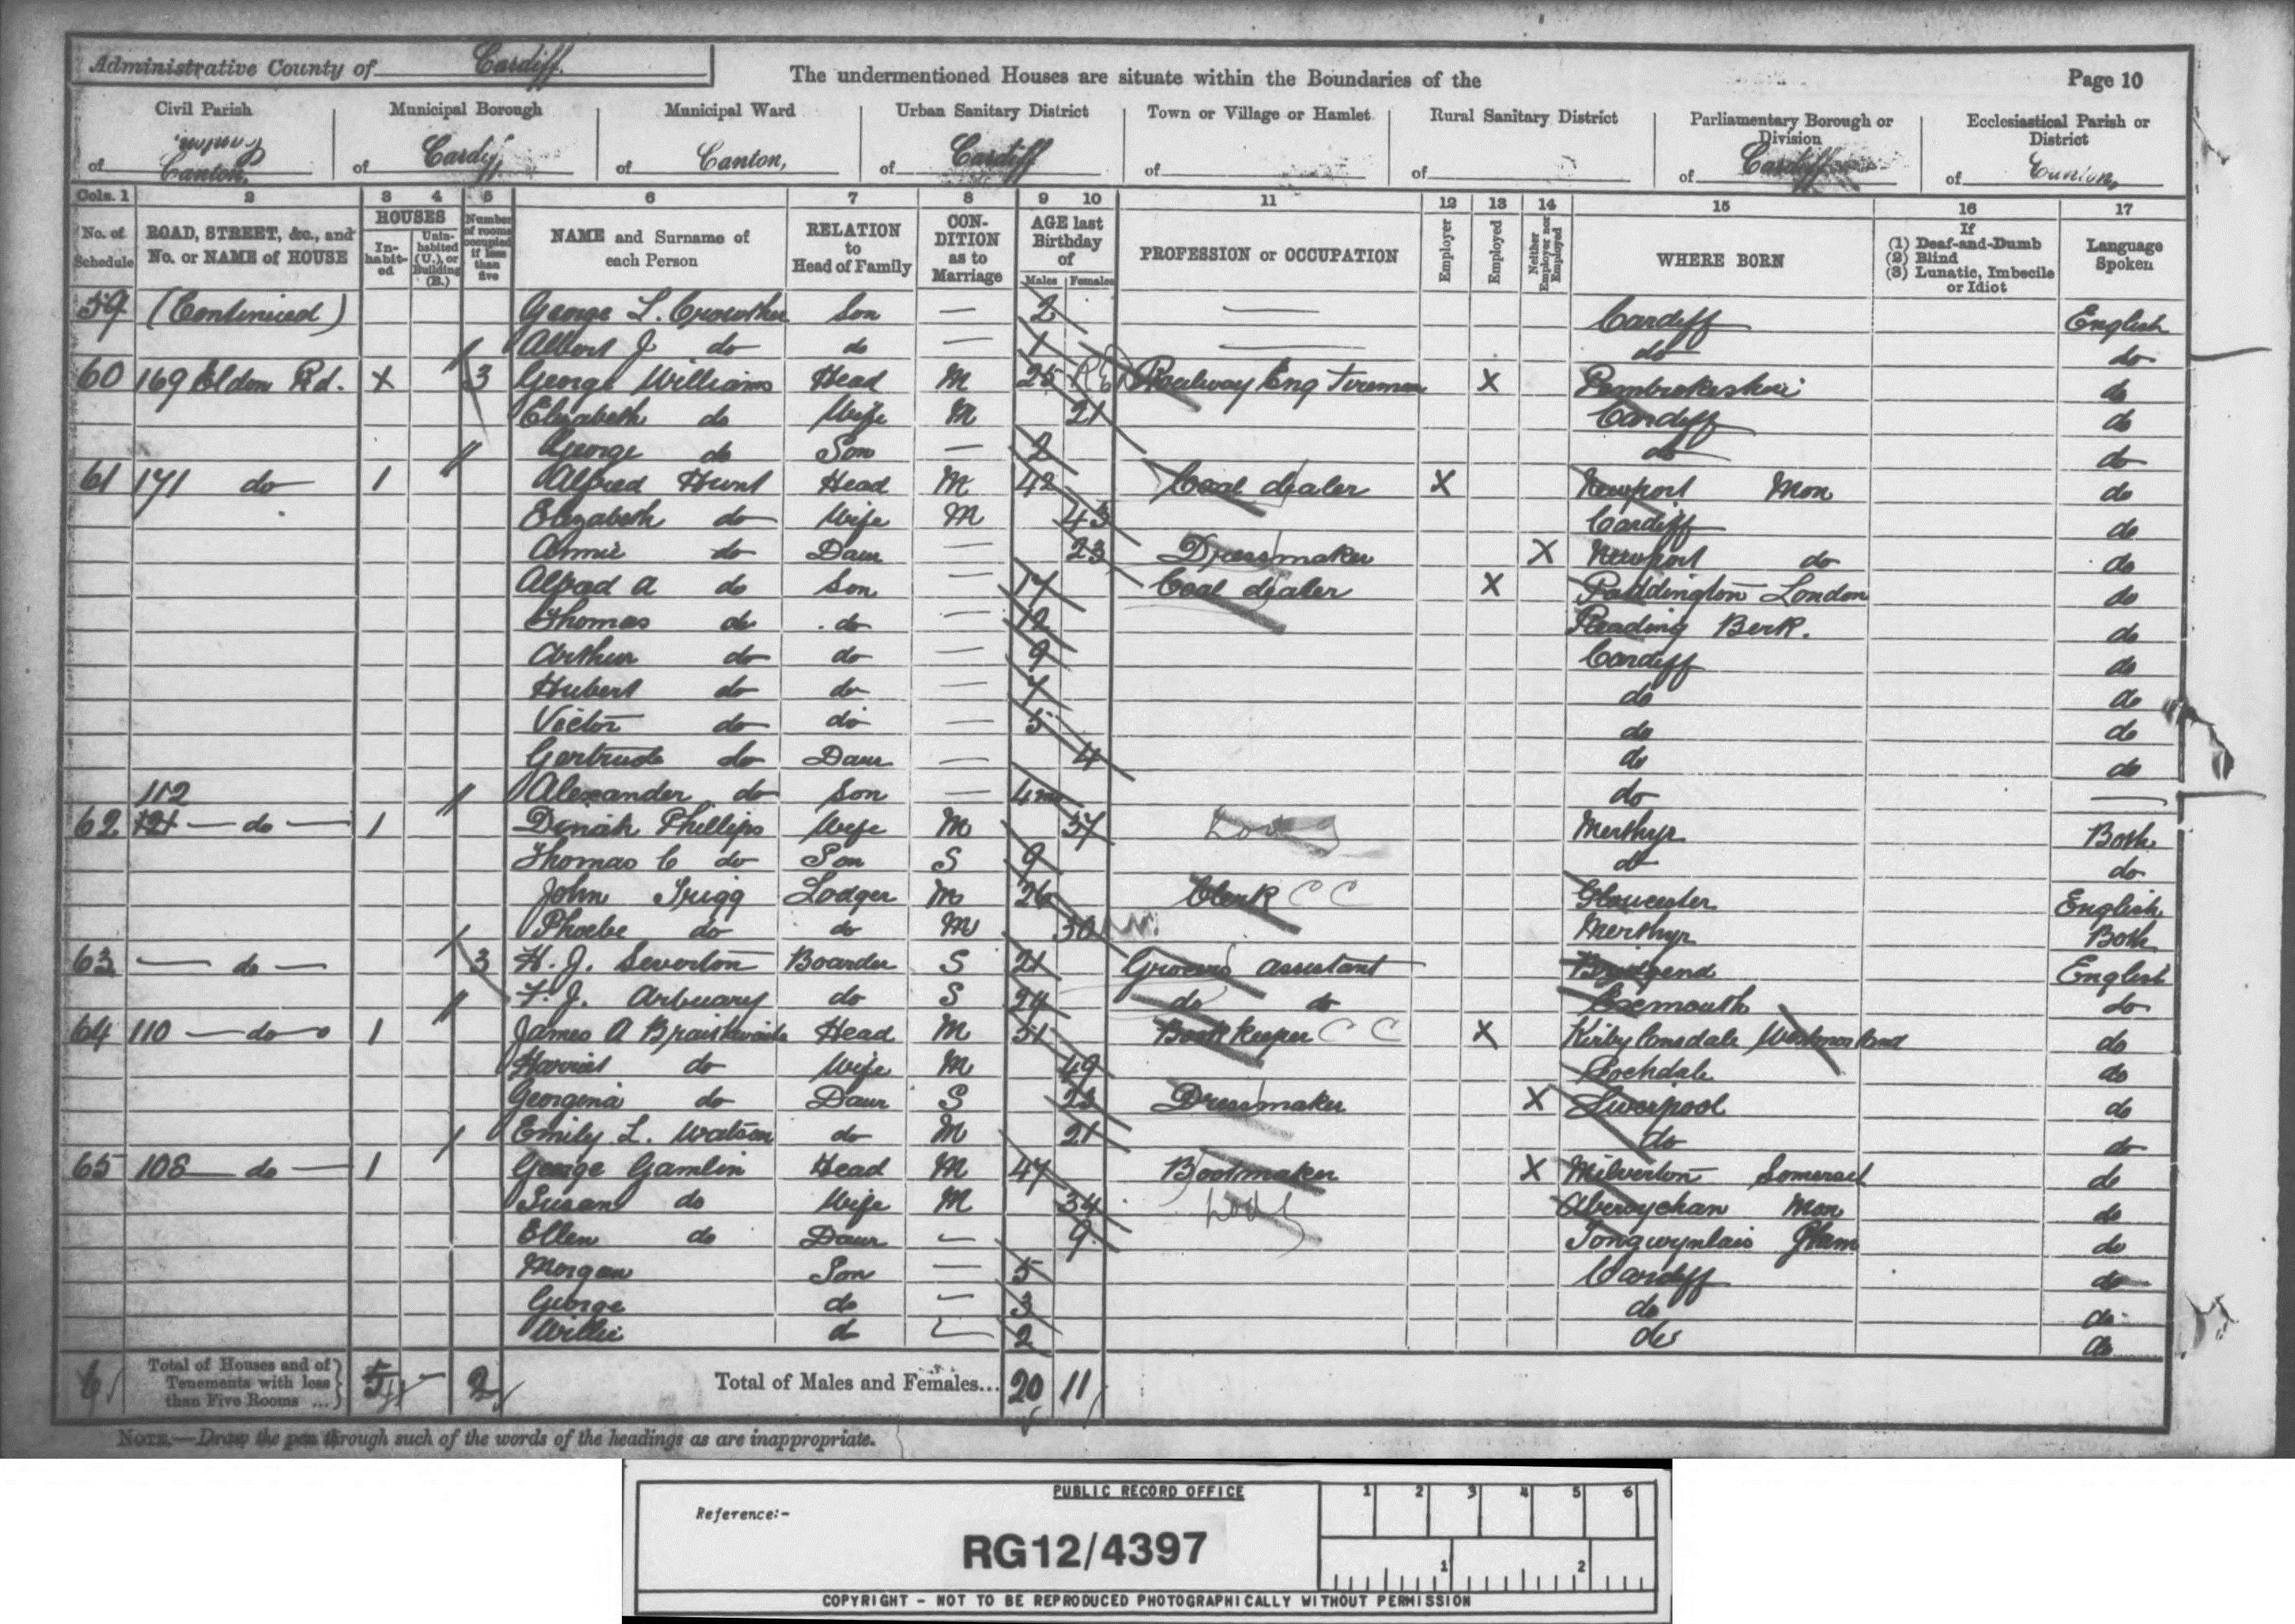 Administrative County of Cardiff. The undermentioned Houses are situate within the Boundaries of the Page 10
Civil Parish Municipal Borough Municipal Ward Urban Sanitary District Town or Village or Hamlet Rural Sanitary District Parliamentary Borough or Division Ecclesiastical Parish or District
of Canton. of Cardiff of Canton, of Cardiff of of of Cardiff of Canton,
Cols. 1 2 3 4 5 6 7 8 9 10 11 12 13 14 15 16 17
No. of Schedule ROAD, STREET, &c., and No. or NAME of HOUSE HOUSES In-habit-ed Unin-habited (U.), or Building (B.) Number of rooms occupied if less than five NAME and Surname of each Person RELATION to Head of Family CON-DITION as to Marriage AGE last Birthday of Males Females PROFESSION or OCCUPATION Employer Employed Neither Employer nor Employed WHERE BORN If (1) Deaf-and-Dumb (2) Blind (3) Lunatic, Imbecile or Idiot Language Spoken
59 (Continued) George L. Crowther Son — 2 — Cardiff English
Albert J do do — 1 — do do
60 169 Eldon Rd. X 3 George Williams Head M 25 Railway Eng Fireman X Pembrokeshire do
Elizabeth do Wife M 21 Cardiff do
George do Son — 2 do do
61 171 do 1 Alfred Hunt Head M 42 Coal dealer X Newport Mon do
Elizabeth do Wife M 43 Cardiff do
Annie do Daur — 23 Dressmaker X Newport do do
Alfred A do Son — 17 Coal dealer X Paddington London do
Thomas do do — 12 Reading Berk. do
Arthur do do — 9 Cardiff do
Hubert do do — 7 do do
Victor do do — 5 do do
Gertrude do Daur — 4 do do
Alexander do Son — 4 mo do —
112
62 121 — do — 1 Dinah Phillips Wife M 37 Merthyr Both
Thomas C do Son S 9 do do
John Trigg Lodger M 26 Clerk C C Gloucester English
Phoebe do do M 30 Merthyr Both
63 — do — 3 H. J. Severton Boarder S 21 Grocers assistant Bridgend English
F. J. Arbuary do S 24 do do Exmouth do
64 110 — do — 1 James A Braithwaite Head M 51 Book keeper C C X Kirby Lonsdale Westmorland do
Harriet do Wife M 49 Rochdale do
Georgina do Daur S 23 Dressmaker X Liverpool do
Emily L. Watson do M 21 do do
65 108 — do — 1 George Gamlin Head M 47 Bootmaker X Milverton Somerset do
Susan do Wife M 34 Abersychan Mon do
Ellen do Daur — 9 Tongwynlais Glam do
Morgan Son — 5 Cardiff do
George do — 3 do do
Willie do — 2 do do
6 Total of Houses and of Tenements with less than Five Rooms ... 5 — 2 Total of Males and Females... 20 11
NOTE.—Draw the pen through such of the words of the headings as are inappropriate.
PUBLIC RECORD OFFICE 1 2 3 4 5 6
Reference:-
RG12/4397
1 2
COPYRIGHT - NOT TO BE REPRODUCED PHOTOGRAPHICALLY WITHOUT PERMISSION